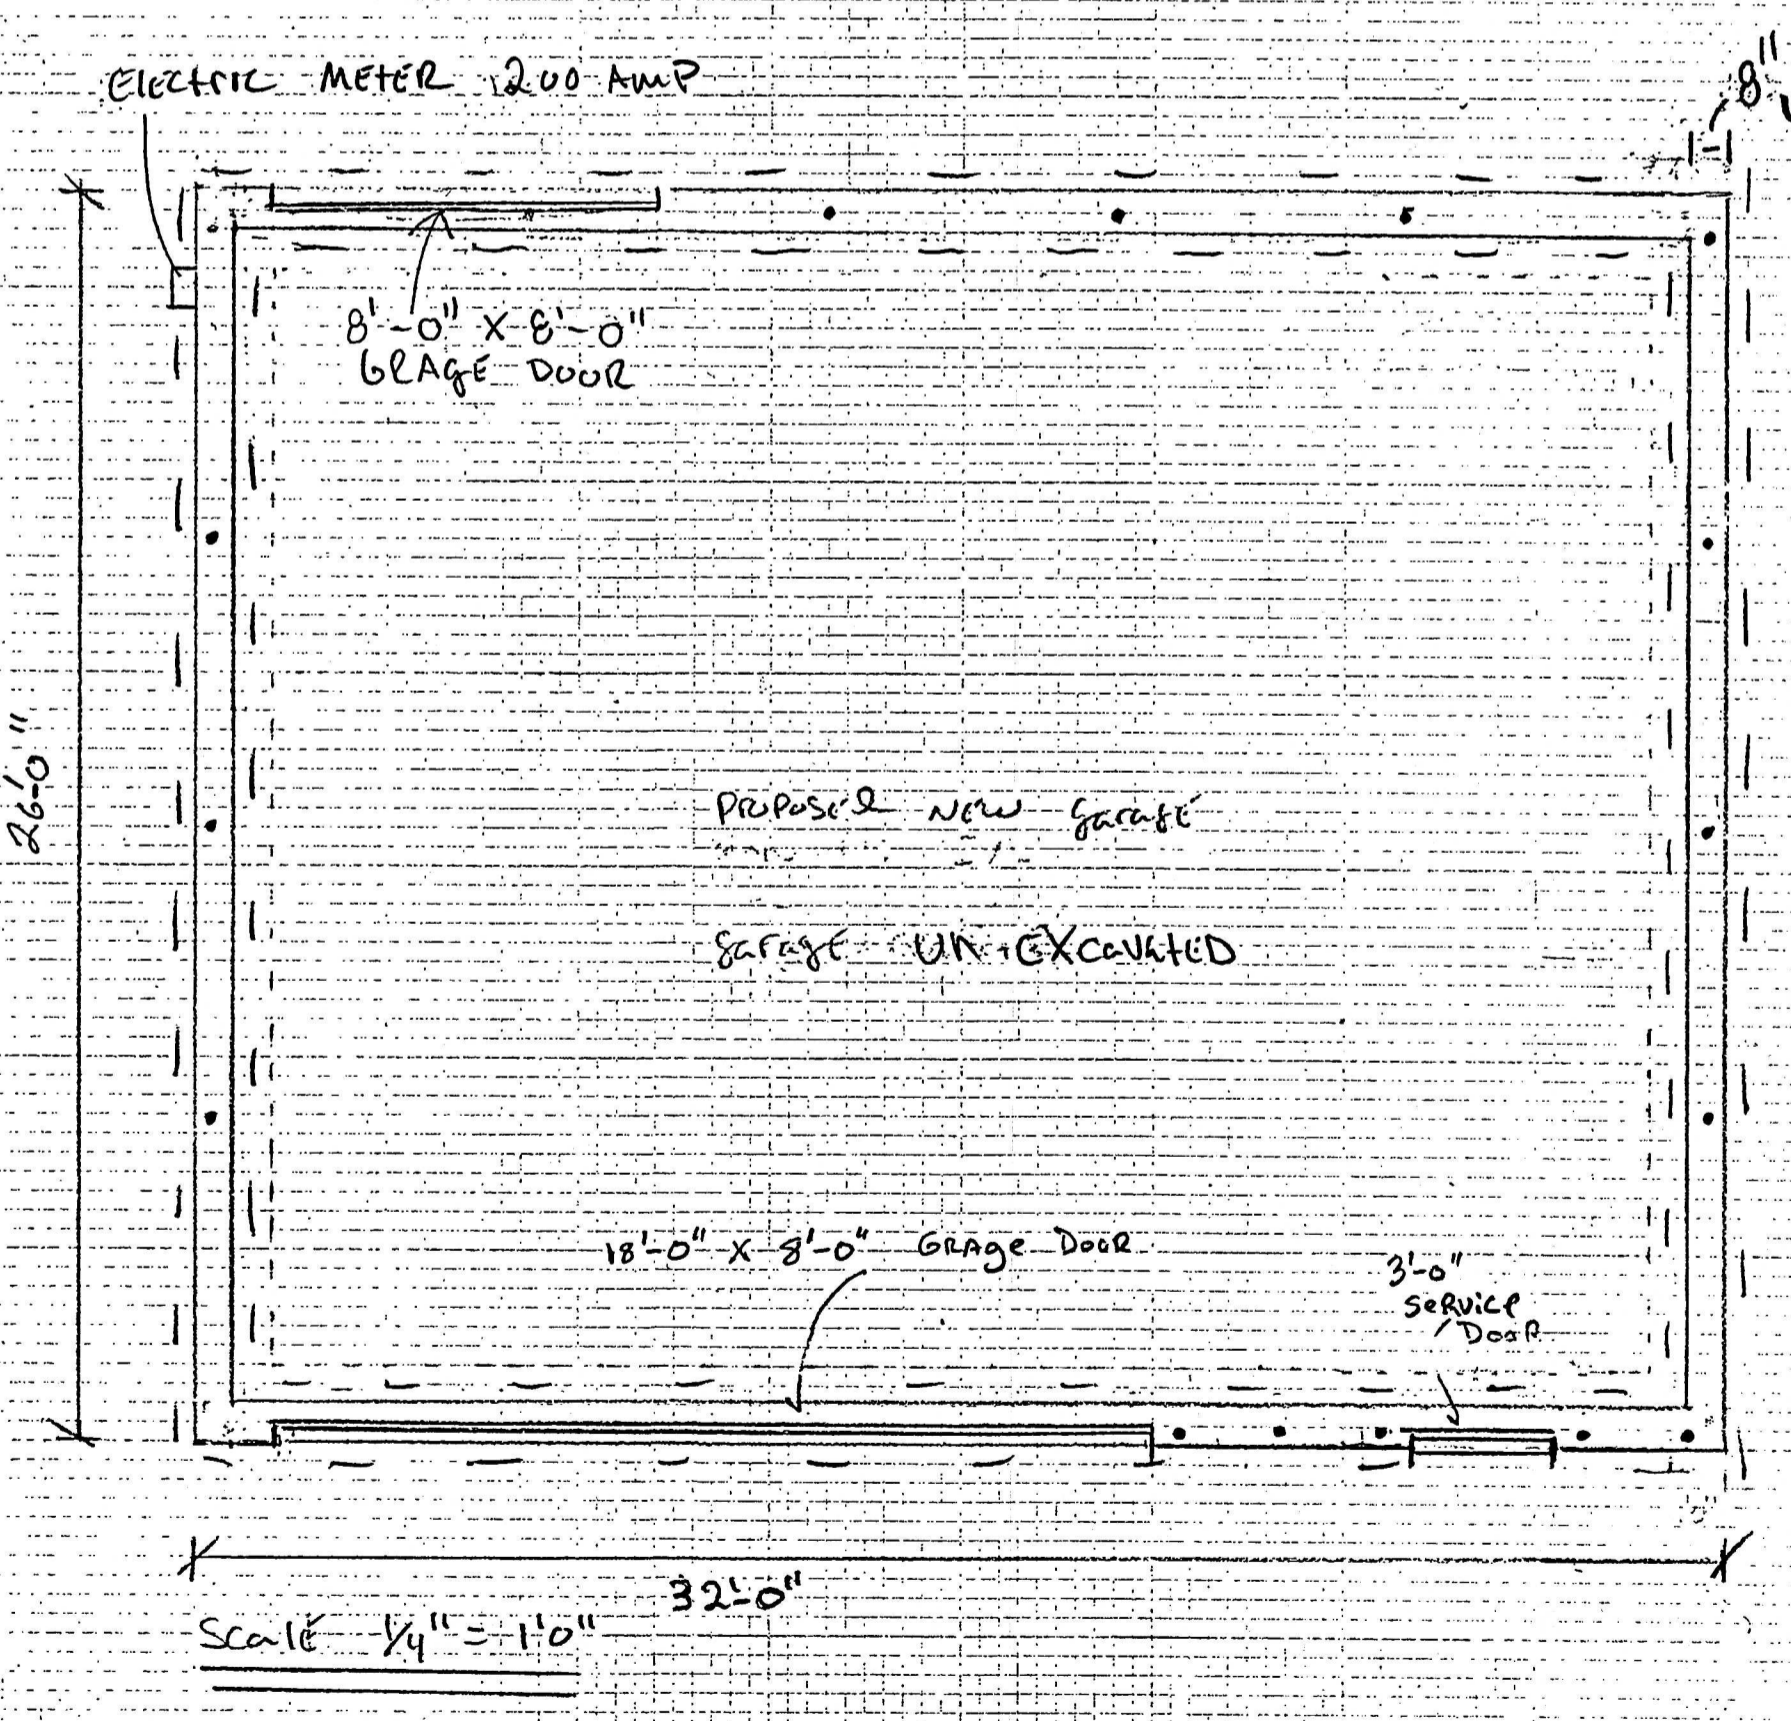 ElEctric METER 200 AMP
8"
8'-0" X 8'-0"
GRAGE DOOR
26'-0"
PROPOSEd NEW garagE
garagE UN-EXCavatED
18'-0" X 8'-0" GRAge DOOR
3'-0"
SeRvice
DooR
32'-0"
ScalE 1/4" = 1'0"